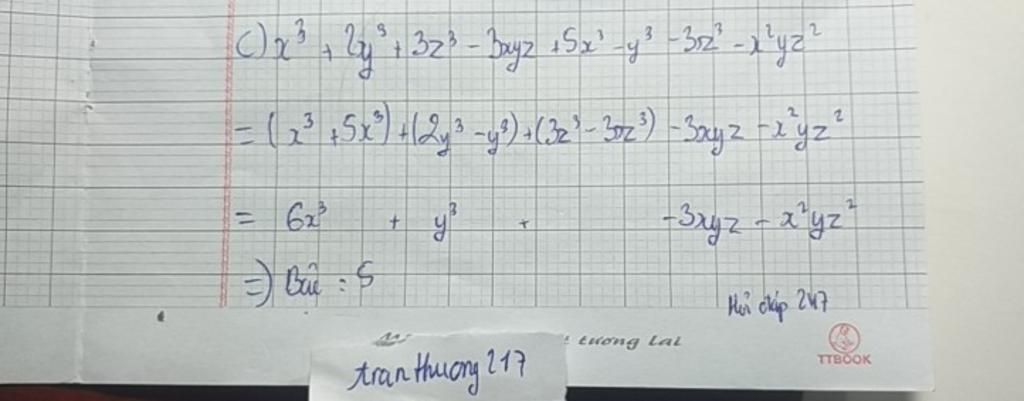 c) x³ + 2y³ + 3z³ - 3xyz + 5x³ - y³ - 3z³ - x²yz²
= (x³ + 5x³) + (2y³ - y³) + (3z³ - 3z³) - 3xyz - x²yz²
= 6x³ + y³ + - 3xyz - x²yz²
=) Bậc : 5
Hỏi đáp 247
tương lai
TTBOOK
tran thuong 217